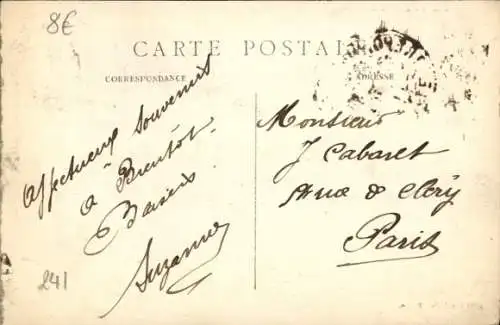 8€
CARTE POSTALE
CORRESPONDANCE
ADRESSE
Affectueux Souvenirs
à Bientôt.
Baisers
Suzanne
241
Monsieur
J Cabaret
rue de Cléry
Paris